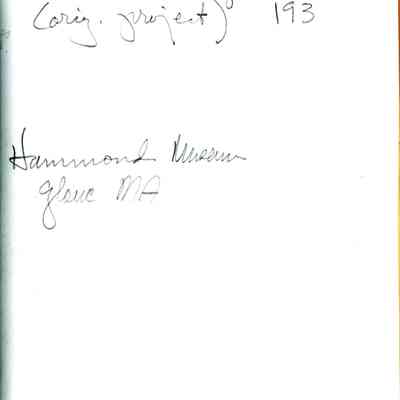 (orig. project) 193
Hammond Museum
Glouc MA